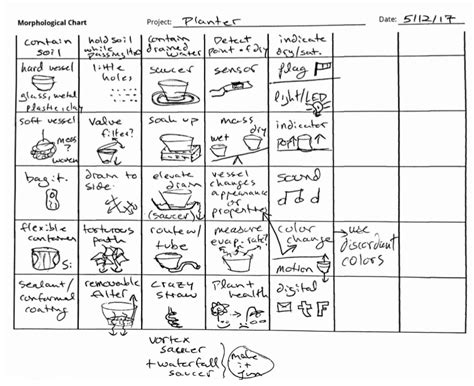 Morphological Chart
Project: Planter
Date: 5/12/17
contain soil
hold soil while passing H2O
contain drained water
Detect point of dry
indicate dry/sat.
hard vessel
glass, metal, plastic, clay
little holes
saucer
sensor
flag
light/LED
soft vessel
mesh?
woven
valve filter?
soak up
mass
wet
dry
indicator
pop!
bag it.
drain to side.
elevate drain
(saucer)
vessel changes appearance or properties
sound
flexible container
Si
torturous path
route w/ tube
measure evap. rate?
color change
motion
use discordant colors
sealant/ conformal coating
removable filter
crazy straw
Plant health
digital
vortex saucer
+ waterfall saucer
make it fun